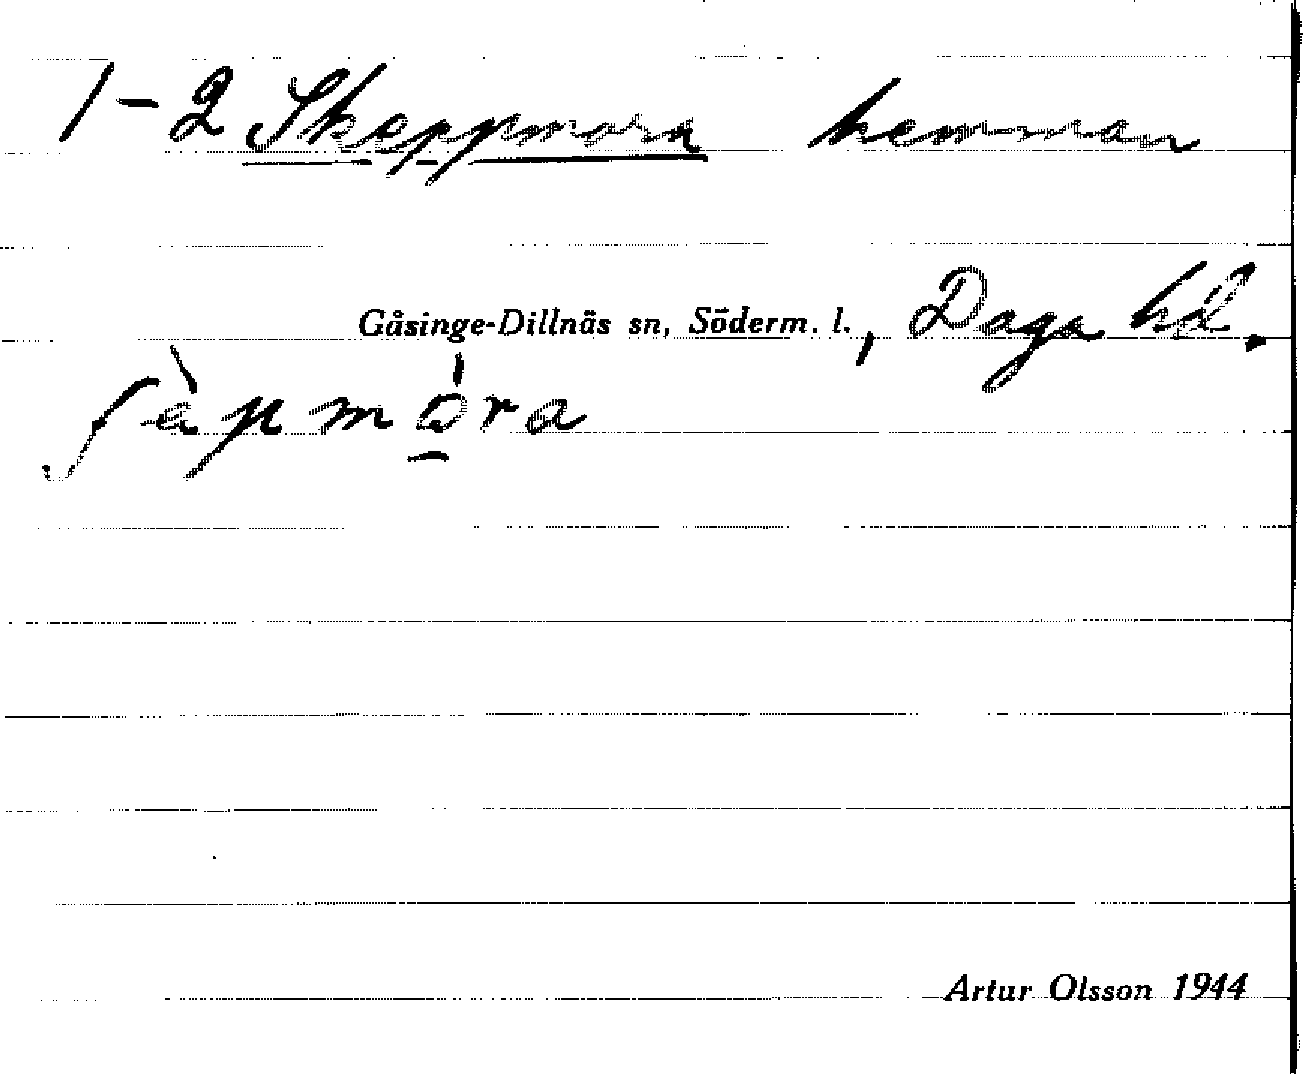 1-2 Skeppmora hemman
Gåsinge-Dillnäs sn, Söderm. l., Daga hd.
ʃèpmo̱ra
Artur Olsson 1944